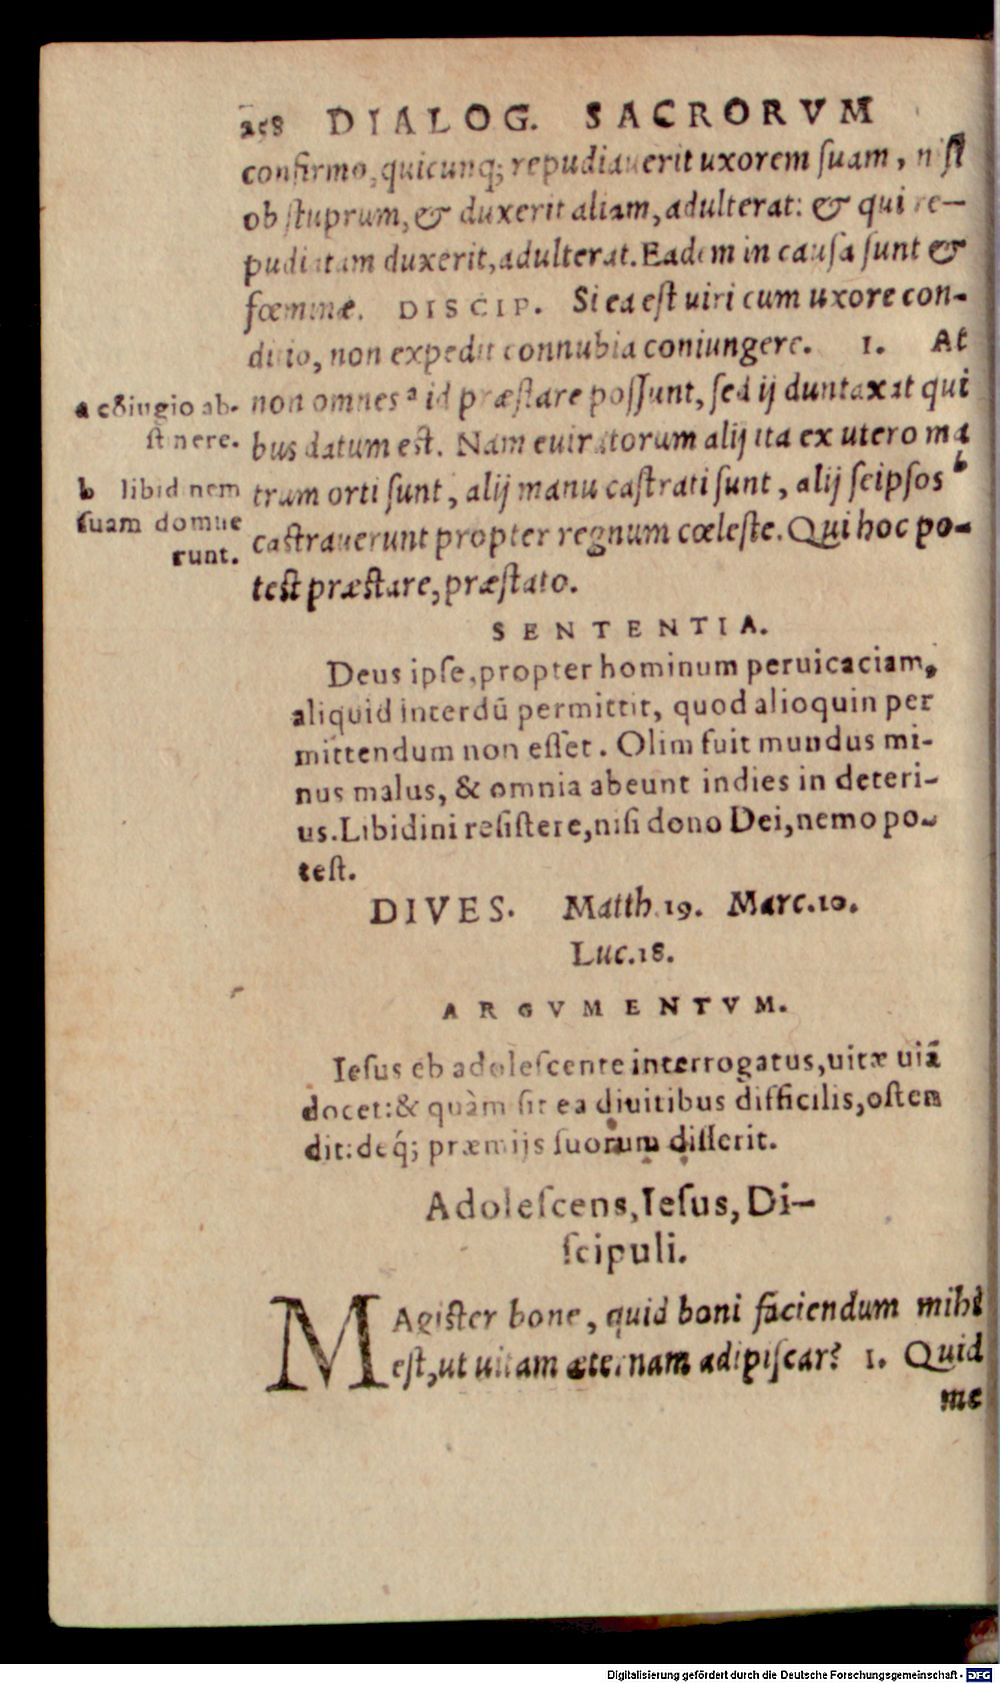 258 DIALOG. SACRORVM
confirmo, quicunq; repudiauerit uxorem suam, nisi
ob stuprum, & duxerit aliam, adulterat: & qui re-
pudiatam duxerit, adulterat. Eadem in causa sunt &
fœminæ. DISCIP. Si ea est uiri cum uxore con-
ditio, non expedit connubia coniungere. I. At
non omnes ª id præstare possunt, sed ij duntaxat qui
bus datum est. Nam euiratorum alij ita ex utero ma
trum orti sunt, alij manu castrati sunt, alij seipsos ᵇ
castrauerunt propter regnum cœleste. Qui hoc po-
test præstare, præstato.
a cōiugio ab-
stinere.
b libidinem
suam domue
runt.
SENTENTIA.
Deus ipse, propter hominum peruicaciam,
aliquid interdū permittit, quod alioquin per
mittendum non esset. Olim fuit mundus mi-
nus malus, & omnia abeunt indies in deteri-
us. Libidini resistere, nisi dono Dei, nemo po-
test.
DIVES. Matth. 19. Marc. 10.
Luc. 18.
ARGVMENTVM.
Iesus eb adolescente interrogatus, uitæ uiā
docet: & quàm sit ea diuitibus difficilis, osten
dit: deq́; præmijs suorum disserit.
Adolescens, Iesus, Di-
scipuli.
MAgister bone, quid boni faciendum mihi
est, ut uitam æternam adipiscar? I. Quid
me
Digitalisierung gefördert durch die Deutsche Forschungsgemeinschaft - DFG